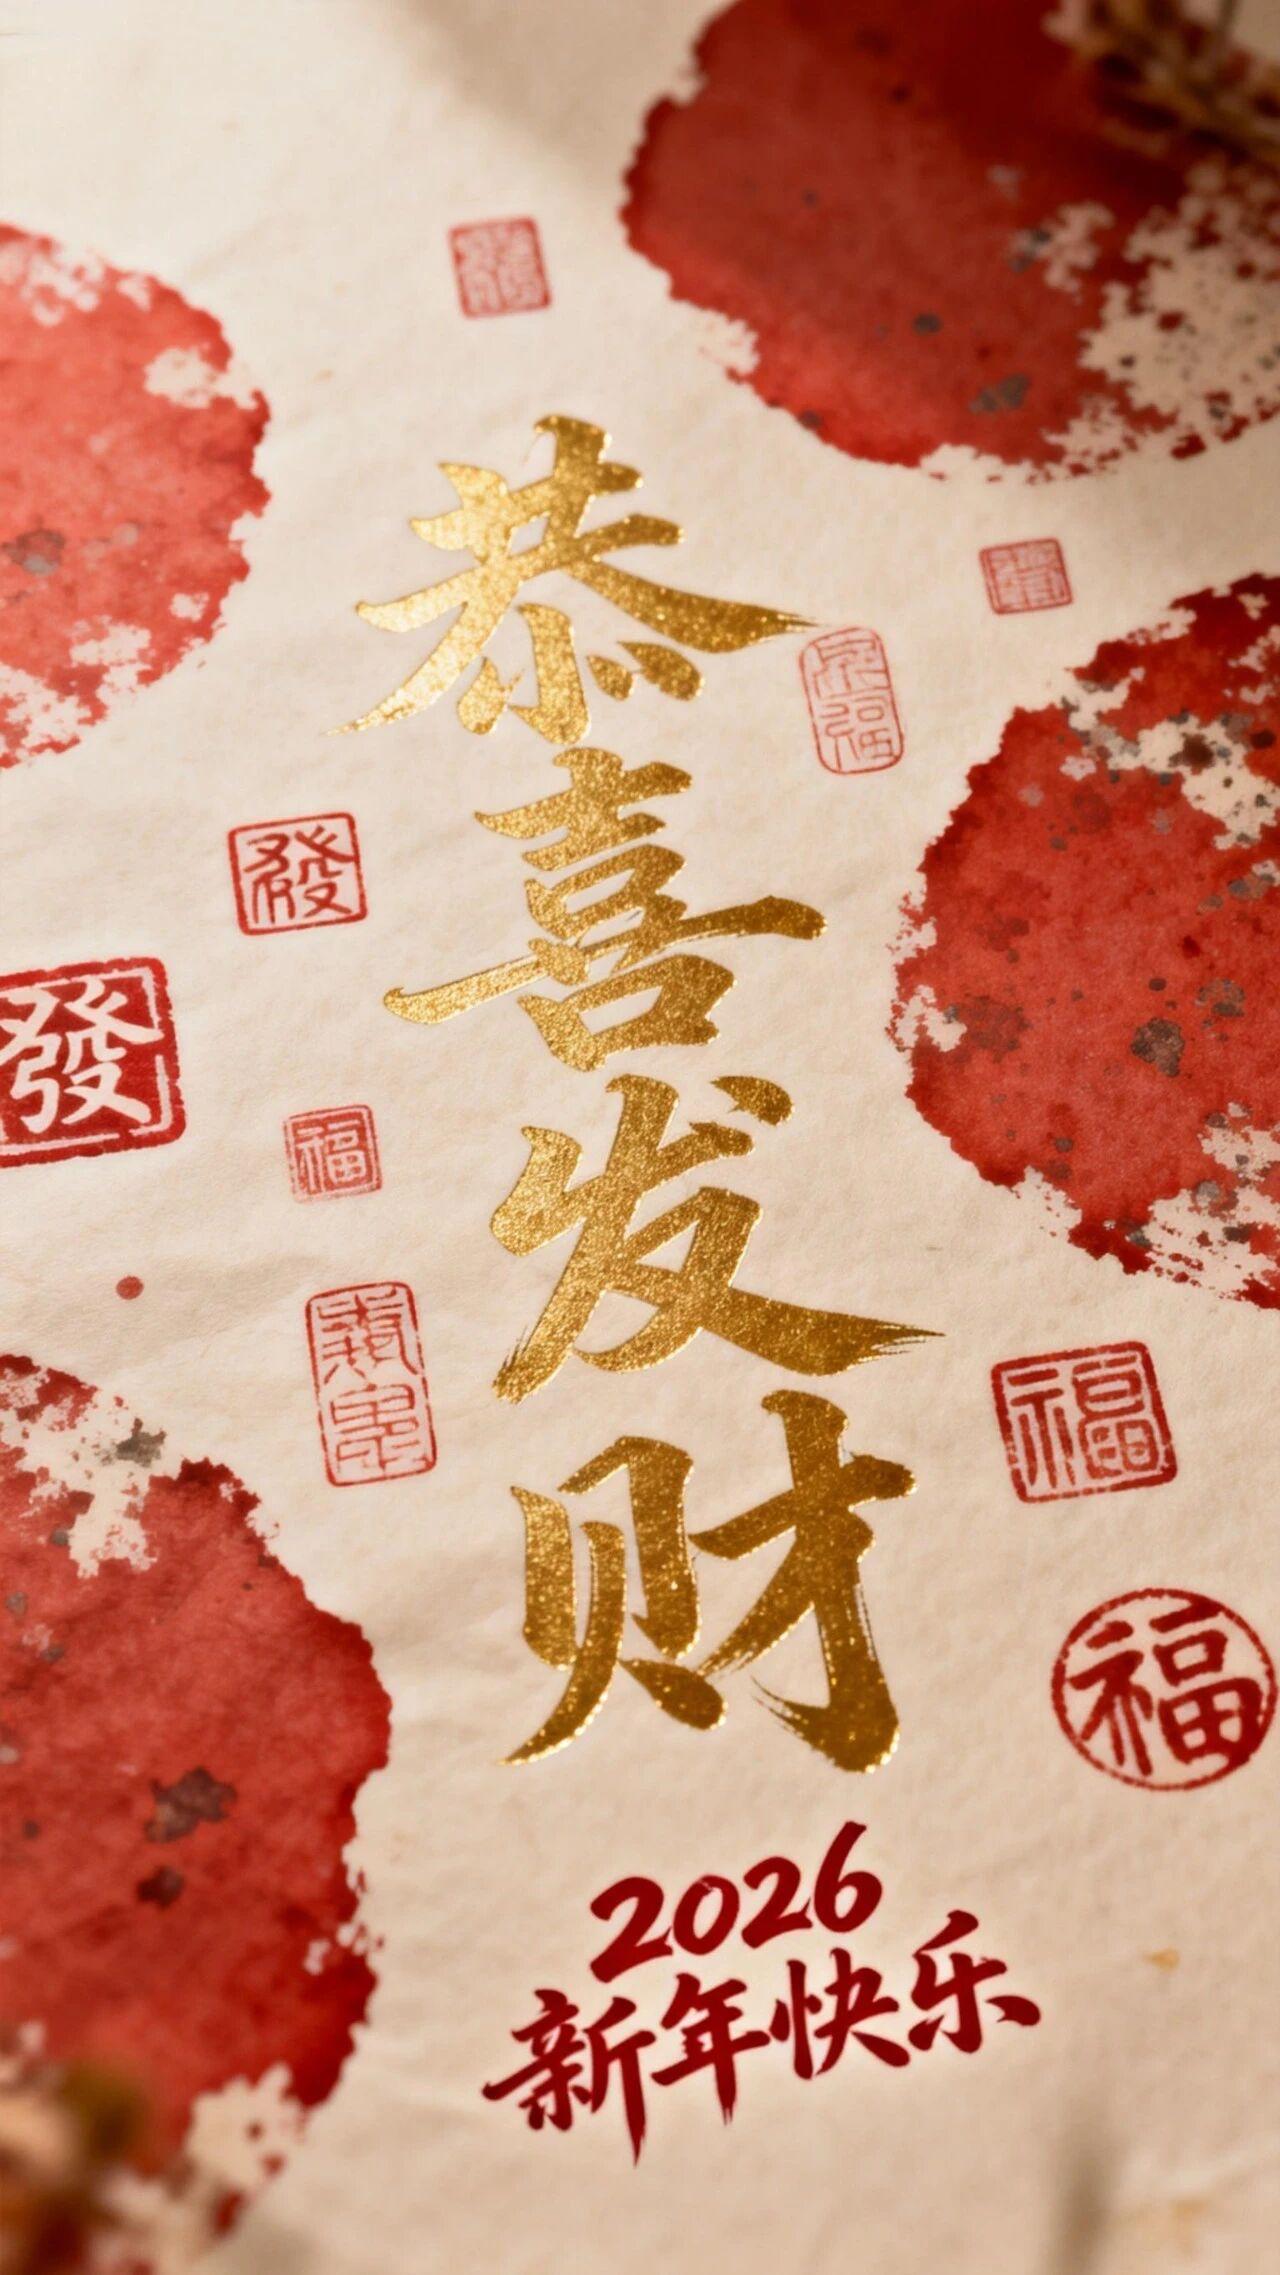 恭喜发财
發
發
福
福
福
2026
新年快乐